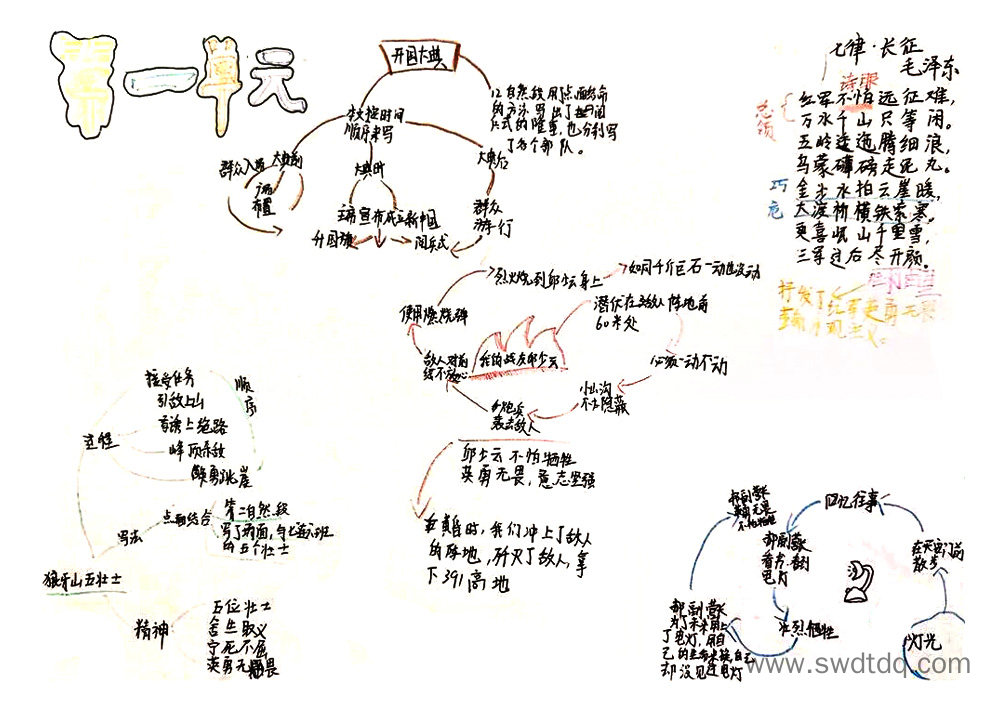 第一单元
开国大典
本文按时间
顺序来写
12自然段用了点面结合
的方法写出了
兵式的隆重,也分别写
了各个部队。
群众入场
大典前
布置
大典时
主席宣布成立新中国
升国旗
阅兵式
大典后
群众
游行
七律·长征
毛泽东
诗眼
总领
红军不怕远征难,
万水千山只等闲。
五岭逶迤腾细浪,
乌蒙磅礴走泥丸。
金沙水拍云崖暖,
大渡桥横铁索寒。
更喜岷山千里雪,
三军过后尽开颜。
抒发了红军英勇无畏
我的战友邱少云
潜伏在敌人阵地前
60米处
必须一动不动
小山沟
不太隐蔽
敌人
敌人对前
使用燃烧弹
烈火烧到邱少云身上
如同千斤巨石一动也没动
邱少云不怕牺牲
英勇无畏,意志坚强
时,我们冲上了敌人
的阵地,歼灭了敌人,拿
下391高地
狼牙山五壮士
过程
接受任务
引敌上山
首诱上绝路
峰顶杀敌
跳崖
顺序
写法
点面结合
第二自然段
的五个壮士
精神
五位壮士
舍生取义
宁死不屈
英勇无畏
灯光
在天安门前
散步
回忆往事
郝副营长
看书
电灯
壮烈牺牲
郝副营长
为了未来用上
了电灯,用自
己的生命来换,自己
却没见过电灯
www.swdtdq.com